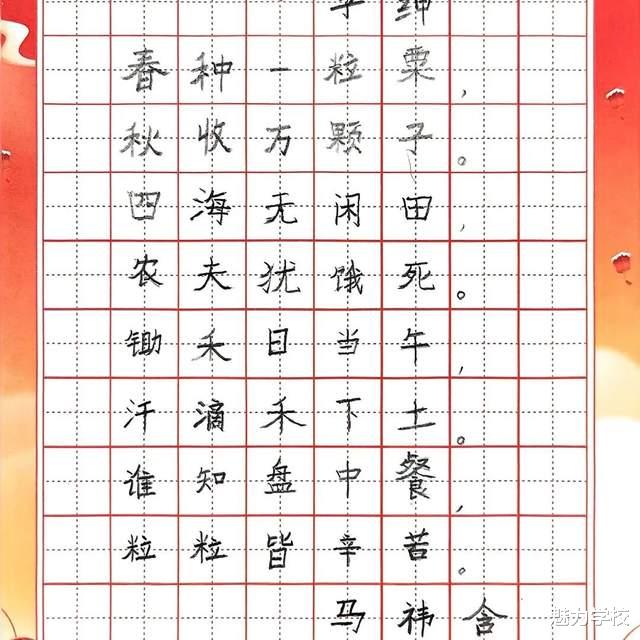 李绅
春种一粒粟，
秋收万颗子。
四海无闲田，
农夫犹饿死。
锄禾日当午，
汗滴禾下土。
谁知盘中餐，
粒粒皆辛苦。
马祎含
魅力学校